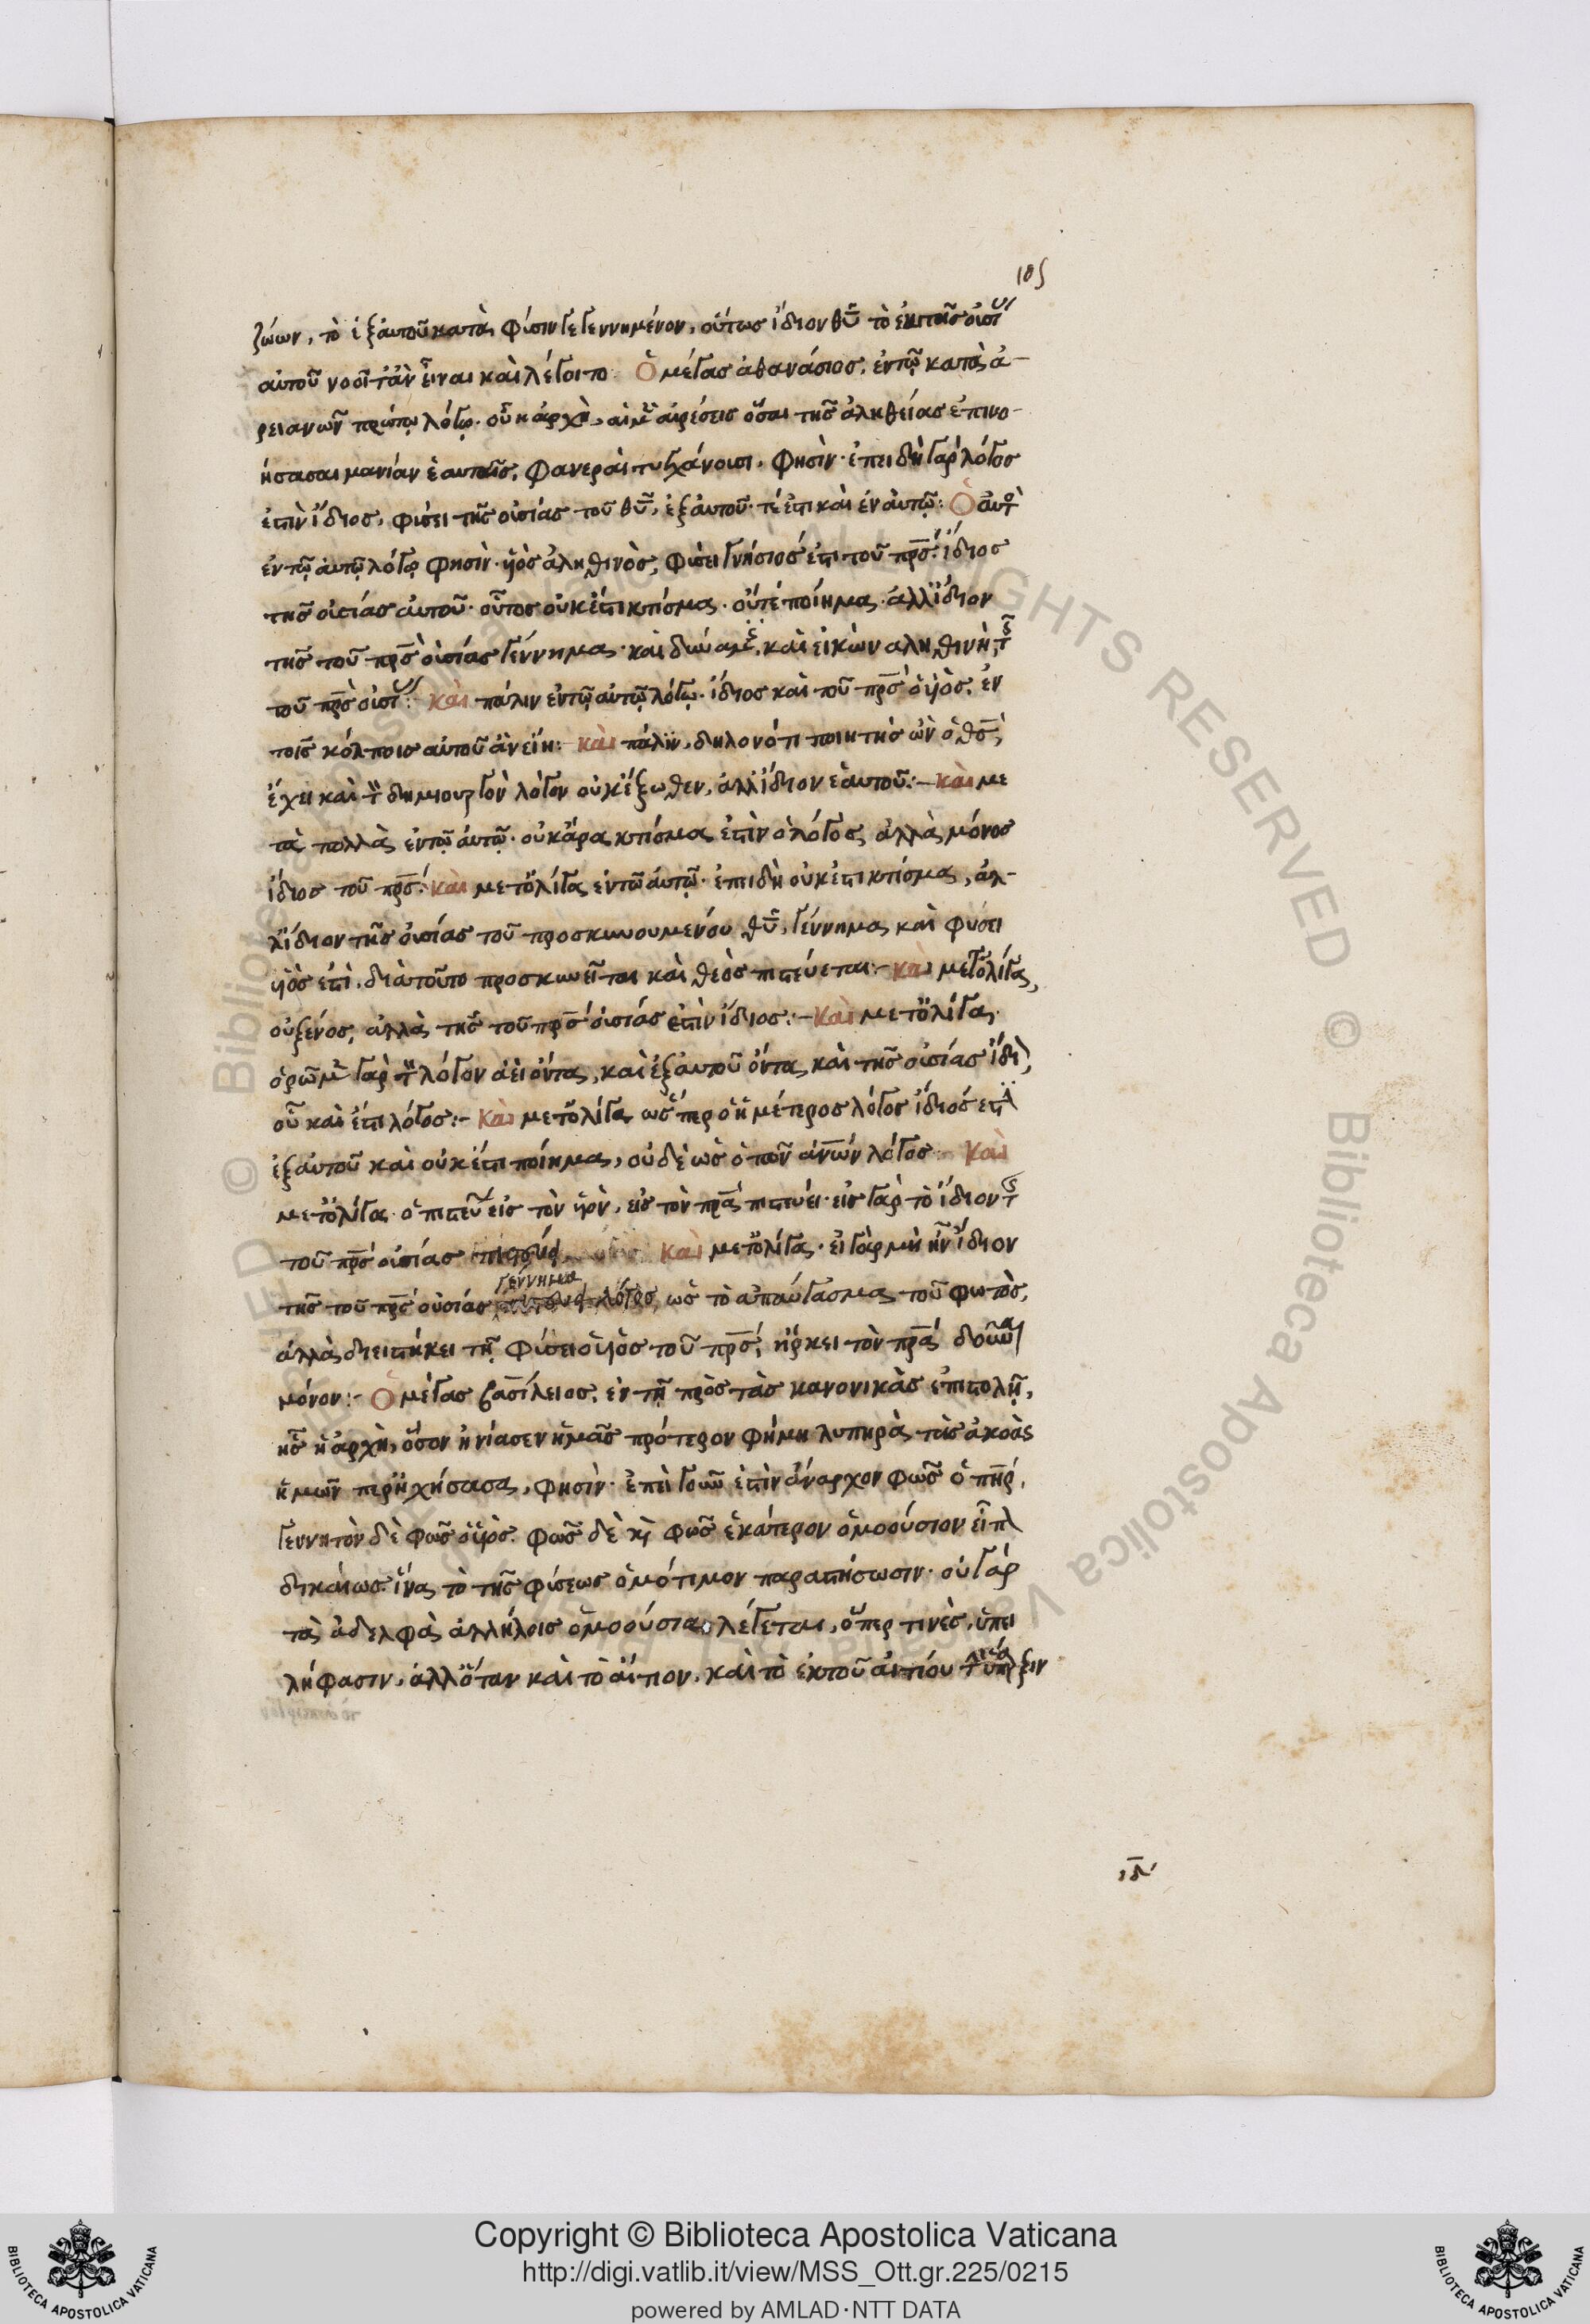 105
ζώων, τὸ ἐξ αυτοῦ κατὰ φύσιν γεγεννημένον, ούτως ίδιον θῦ τὸ ἐκ τῆς οὐσί
αὐτοῦ νοοῖτ ἂν εἶναι καὶ λέγοιτο. Ὁ μέγας ἀθανάσιος, ἐν τῷ κατὰ ἀ-
ρειανῶν πρώτῳ λόγῳ. οὗ ἡ ἀρχὴ, αἱ μὲν αἱρέσεις ὅσαι τῆς ἀληθείας ἐπινο-
ήσασαι μανίαν ἑαυταῖς, φανεραὶ τυγχάνουσι, φησὶν. ἐπειδὴ γὰρ λόγος
ἐστὶν ἴδιος, φύσει τῆς οὐσίας τοῦ θῦ, ἐξ αὐτοῦ. τέ ἐστι καὶ ἐν αὐτῷ: Ὁ αὐτὸ
ἐν τῷ αὐτῷ λόγῳ φησὶν. ὑἱὸς ἀληθινὸς, φύσει γνήσιός ἐστι τοῦ πρσ. ἴδιος
τῆς οὐσίας αὐτοῦ. οὗτος οὐκ ἔστι κτίσμα. οὔτε ποίημα. ἀλλ ἴδιον
τῆς τοῦ πρσ οὐσίας γέννημα. καὶ δύναμς, καὶ εἰκὼν αληθινὴ, τ
τοῦ πρσ οὐσί: καὶ πάλιν ἐν τῷ αὐτῷ λόγῳ. ἴδιος καὶ τοῦ πρσ ὁ ὑἱὸς, ἐν
τοῖς κόλποις αὐτοῦ ἂν εἴη: καὶ πάλιν, δηλονότι ποιητὴς ὢν ὁ θσ,
ἔχει καὶ τ δημιουργὸν λόγον οὐκ ἔξωθεν, ἀλλ ἴδιον ἑαυτοῦ:- καὶ με
τὰ πολλὰ ἐν τῷ αὐτῷ. οὐκ ἄρα κτίσμα ἐστὶν ὁ λόγος ἀλλὰ μόνος
ἴδιος τοῦ πρσ: καὶ μετ ὀλίγα ἐν τῷ αὐτῷ. ἐπειδὴ οὐκ ἔστι κτίσμα, ἀλ-
λ ἴδιον τῆς οὐσίας τοῦ προσκυνουμένου θῦ, γέννημα καὶ φύσει
ὑἱὸς ἐστὶ. διὰ τοῦτο προσκυνεῖται καὶ θεὸς πιστεύεται:- καὶ μετ ὀλίγα,
οὐ ξένος, ἀλλὰ τῆς τοῦ πρσ οὐσίας ἐστὶν ἴδιος:- καὶ μετ ὀλίγα.
ὁρῶμ γὰρ τ λόγον ἀεὶ ὄντα, καὶ ἐξ αὐτοῦ ὄντα, καὶ τῆς οὐσίας ἴδι,
οὗ καὶ ἔστι λόγος:- καὶ μετ ὀλίγα ὥσπερ ὁ ἡμέτερος λόγος ἴδιός ἐστ
ἐξ αὐτοῦ καὶ οὐκ ἔστι ποίημα, οὐδὲ ὡς ὁ τῶν ἀνων λόγος: καὶ
μετ ὀλίγα. ὁ πιστεύ εἰς τὸν ὑἱὸν, εἰς τὸν πρα πιστεύει. εἰς γὰρ τὸ ἴδιον τ
τοῦ πρσ οὐσίας πιστεύει καὶ μετ ὀλίγα. εἰ γὰρ μὴ ἦν ἴδιον
γέννημα
τῆς τοῦ πρσ οὐσίας λόγος, ὡς τὸ ἀπαύγασμα τοῦ φωτὸς,
ἀλλὰ διειστήκει τῇ φύσει ὁ ὑἱὸς τοῦ πρσ, ἤρκει τὸν πρα δοῦναι
μόνον:- Ὁ μέγας βασίλειος, ἐν τῇ πρὸς τὰς κανονικὰς ἐπιστολῇ,
ἧς ἡ ἀρχὴ, ὅσον ἠνίασεν ἡμᾶς πρότερον φήμη λυπηρὰ τὰς ἀκοὰς
ἡμῶν περιηχήσασα, φησὶν. ἐπεὶ γοῦν ἐστὶν ἄναρχον φῶς ὁ πηρ,
γεννητὸν δὲ φῶς ὁ ὑἱὸς. φῶς δὲ κ φῶς ἑκάτερον ὁμοούσιον εἶπ
δικαίως. ἵνα τὸ τῆς φύσεως ὁμότιμον παραστήσωσιν. οὐ γὰρ
τὰ ἀδελφὰ ἀλλήλοις ὁμοούσια λέγεται, ὅπερ τινὲς, ὑπει
λήφασιν, ἀλλ ὅταν καὶ τὸ αἴτιον, καὶ τὸ ἐκ τοῦ αἰτίου τ ὕπαρξιν
ιδ
Copyright © Biblioteca Apostolica Vaticana
http://digi.vatlib.it/view/MSS_Ott.gr.225/0215
powered by AMLAD·NTT DATA